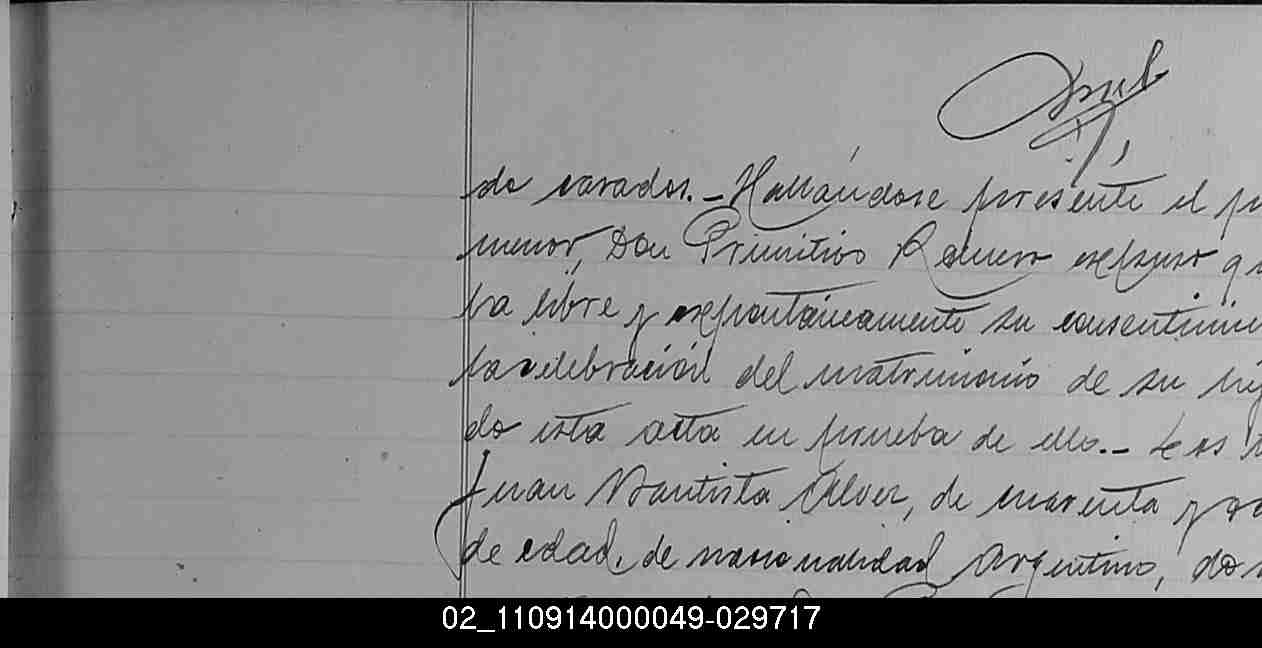 do casados.- Hallándose presente el
menor, Don Primitivo Romero expuso
ba libre y expontáneamente su
la celebración del matrimonio de su
do esta acta en prueba de ello.- Los
Juan Bautista Alvez, de cuarenta y
de edad, de nacionalidad Argentino,
02_110914000049-029717